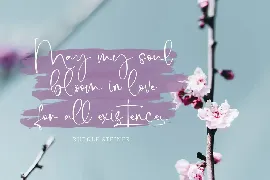 May my soul
bloom in love
for all existence.